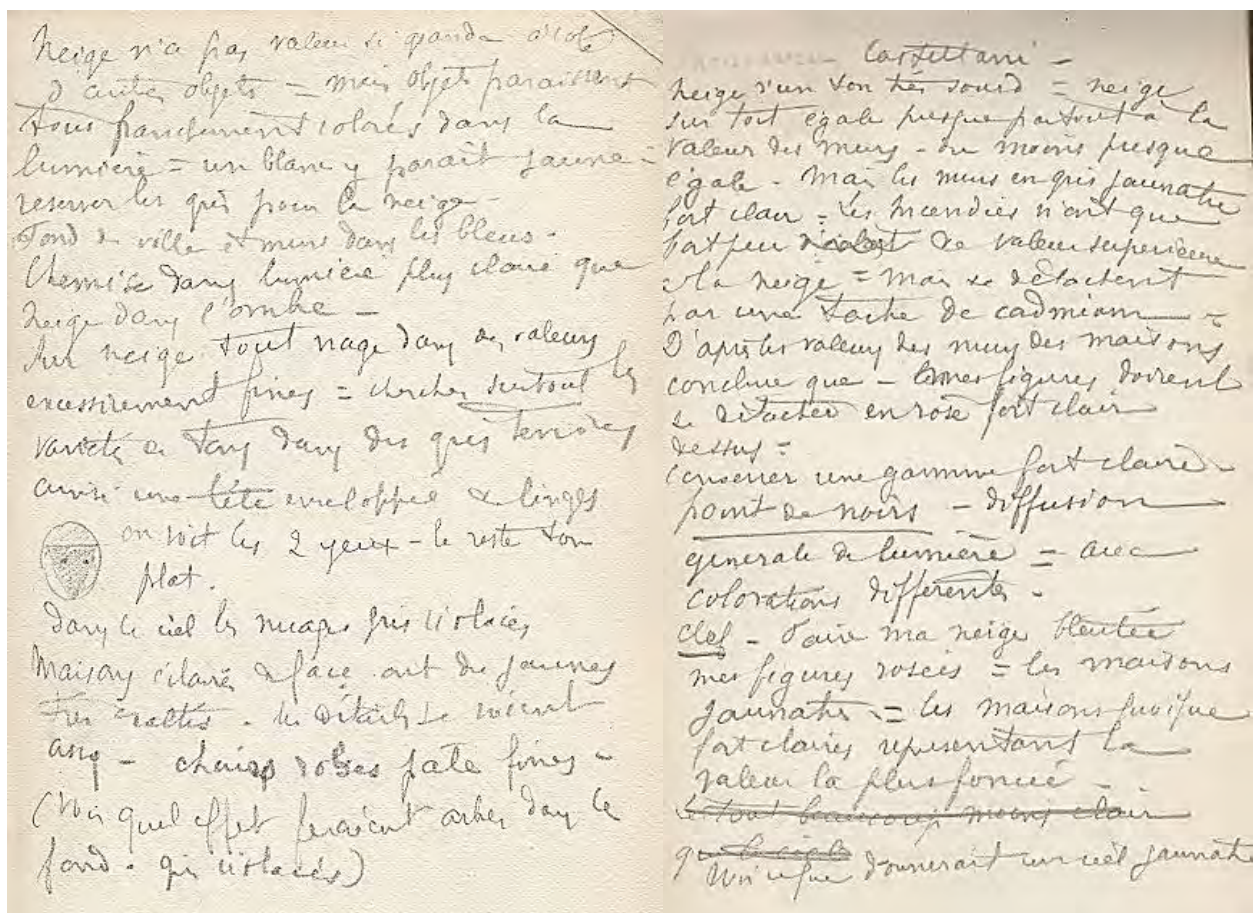 neige n'a pas valeur si grande à côté
d'autres objets = mais objets paraissent
tous franchement colorés dans la
lumière = un blanc y paraît jaune -
reserver les gris pour la neige -
fond de ville et murs dans les bleus -
Chemise dans lumière plus claire que
neige dans l'ombre -
Sur neige tout nage dans des valeurs
excessivement fines = chercher surtout les
variétés de tons dans des gris
ainsi une tête enveloppée de linges
on voit les 2 yeux - le reste ton
plat.
dans le ciel les nuages gris violacés
Maisons éclairées de face ont des jaunes
très - les détails se voient
assez - chairs roses pâle fines -
(Voir quel effet feraient arbres dans le
fond - gris violacés)
Castellani -
neige d'un ton très sourd = neige
sur toit égale presque partout à la
valeur des murs - ou moins presque
égale - Mais les murs en gris jaunatre
fort clair = Les Incendies n'ont que
fort peu de valeur superieure
à la neige = Mais se détachent
par une tache de cadmium =
D'après les valeurs des murs des maisons
conclure que - mes figures doivent
se détacher en rose fort clair
dessus =
conserver une gamme fort claire -
point de noirs - diffusion
generale de lumière = avec
colorations differentes -
clef - faire ma neige bleutée
mes figures rosées = les maisons
jaunatres = les maisons quoique
fort claires representant la
valeur la plus foncée -
le tout beaucoup moins clair
que le ciel
Voir ce que donnerait un ciel jaunatre